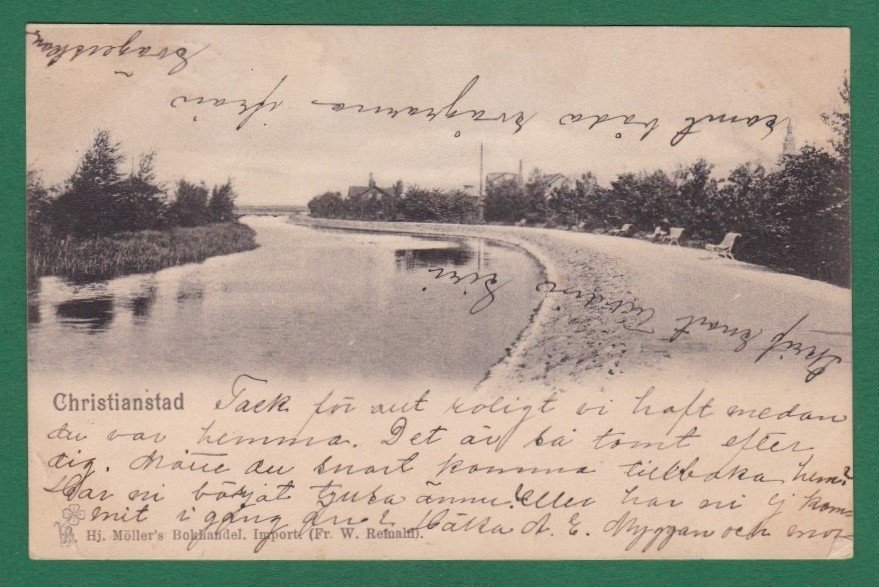 Christianstad Tack för allt roligt vi haft medan
du var hemma. Det är så tomt efter
dig. Måtte du snart komma tillbaka hem?
Har ni börjat tjusa ännu? Eller har ni ej kom-
mit i gång än? Hälsa A. E. Myggan och mor
Hj. Möller's Bokhandel. Import. (Fr. W. Remahl).
samt båda svägrarna ifrån
Skrif snart till vän
Siri